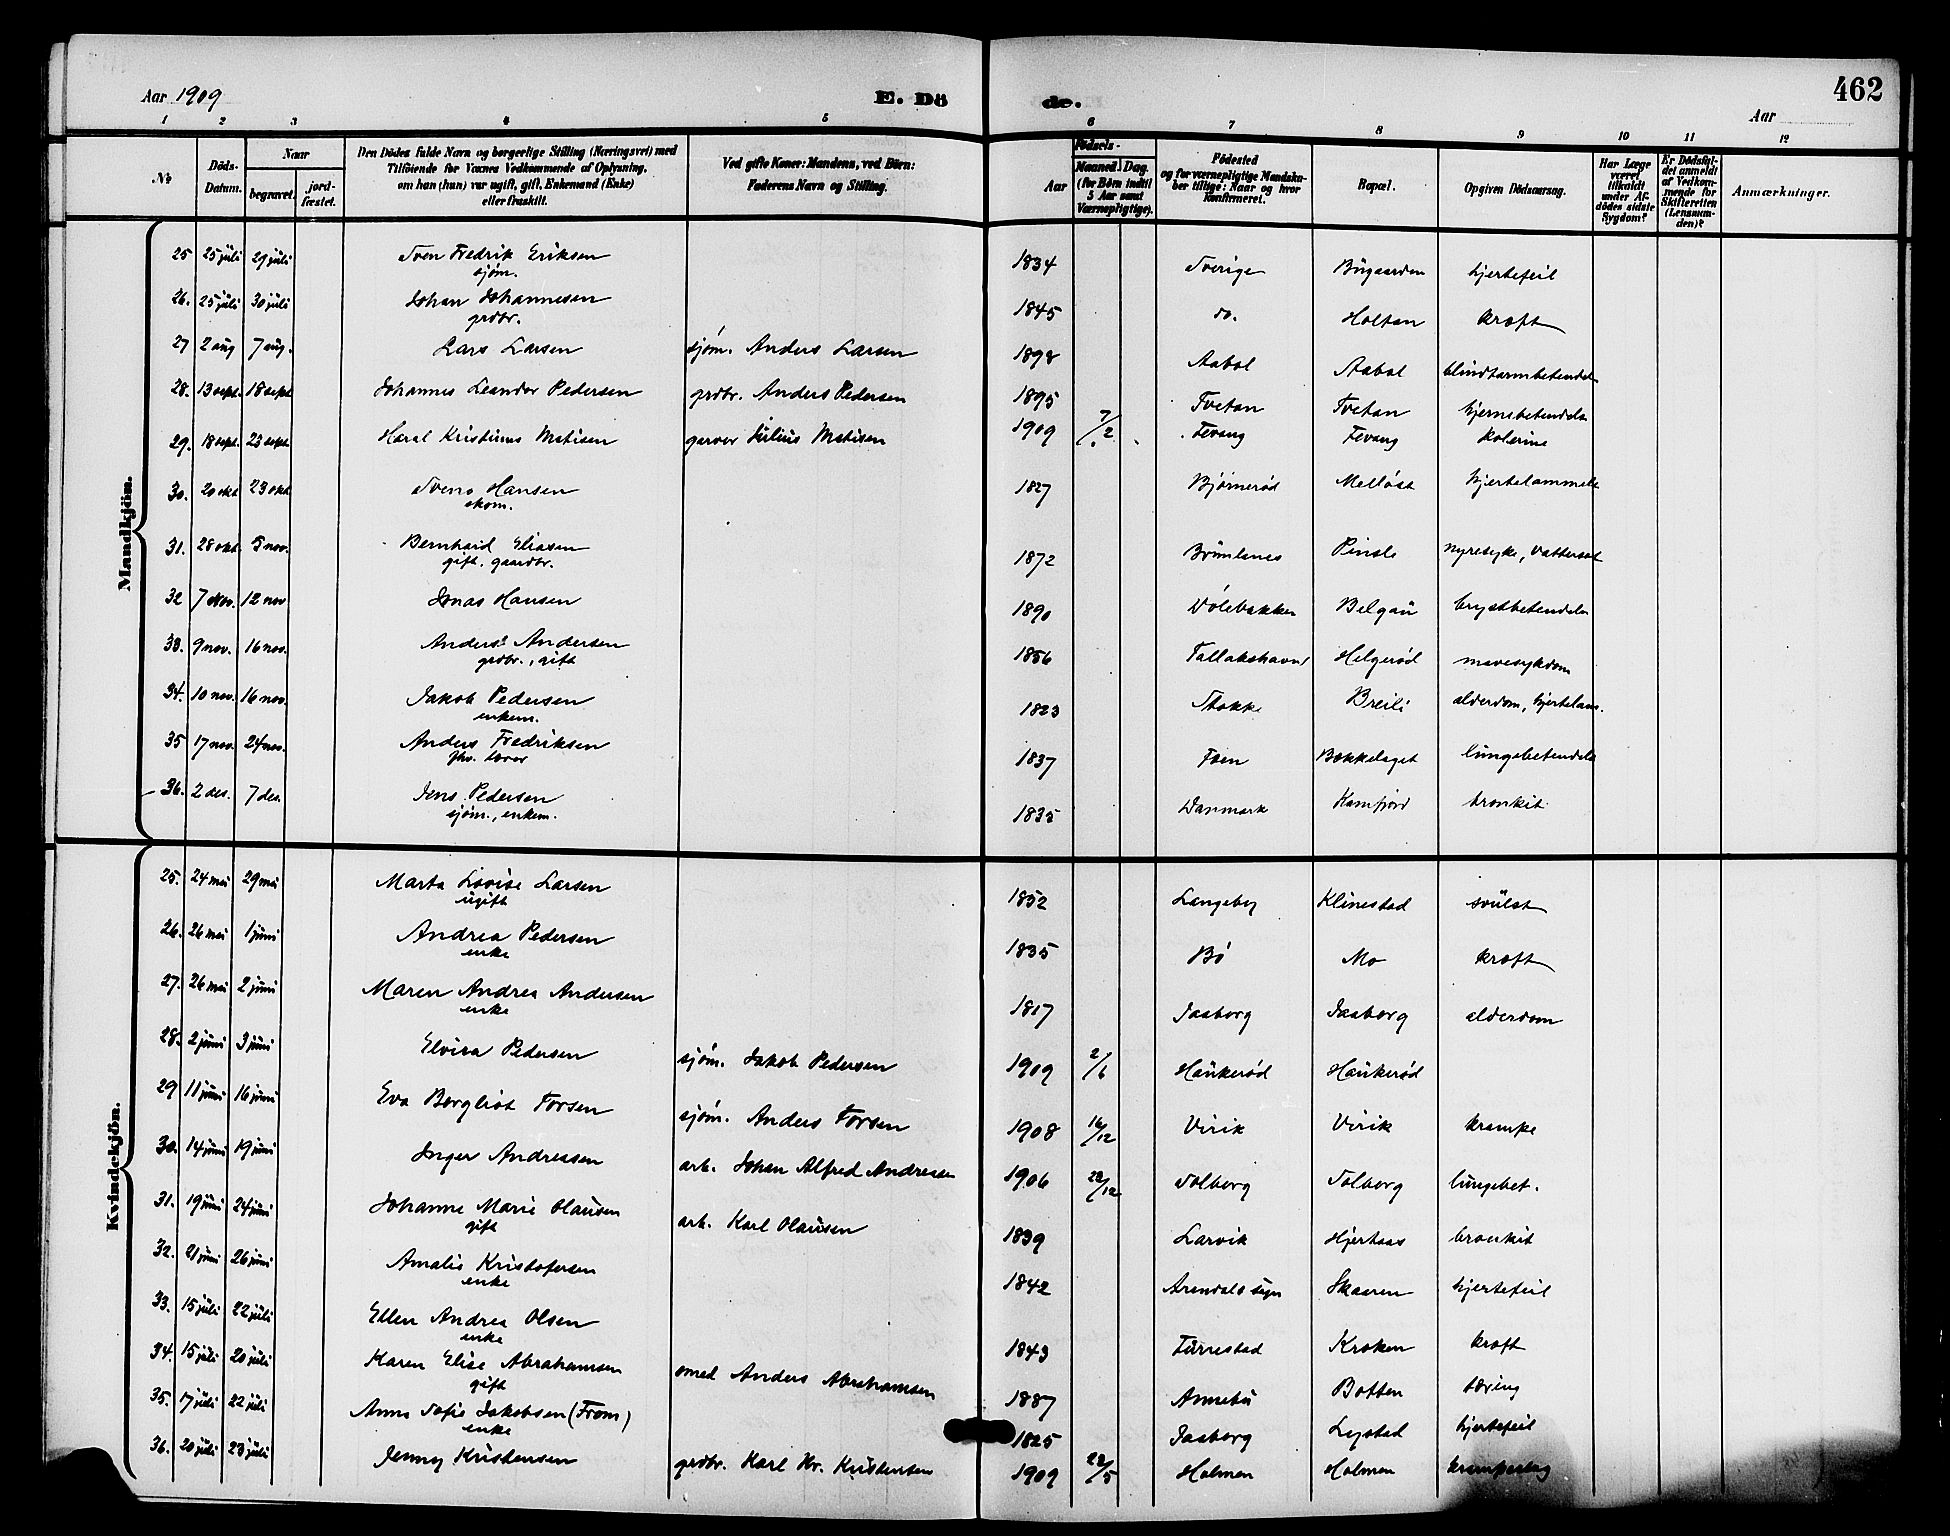 Aar 1909 E. Dö de. Aar 462
1 2 3 4 5 6 7 8 9 10 11 12
No
Döds-Datum.
Naar
begravet.
jord-fæstet.
Den Dödes fulde Navn og borgerlige Stilling (Næringsvei) med
Tilföiende for Voxnes Vedkommende af Oplysning,
om han (hun) var ugift, gift, Enkemand (Enke)
eller fraskilt.
Ved gifte Koner: Mandens, ved Börn:
Faderens Navn og Stilling.
Födsels-
Aar
Maaned. Dag.
(for Börn indtil
5 Aar samt
Værnepligtige).
Födested
og for værnepligtige Mandska-
ber tillige: Naar og hvor
konfirmeret.
Bopæl.
Opgiven Dödsaarsag.
Har Læge
været
tilkaldt
under Af-
dödes sidste
Sygdom?
Er Dödsfal-
det anmeldt
af Vedkom-
mende for
Skifteretten
(Lensman-
den)?
Anmærkninger.
Mandkjön.
25 25 juli 29 juli Sven Fredrik Eriksen 1834 Sverige Bügaarden hjertefeil
sjøm.
26. 25 juli 30 juli Johan Johannesen 1845 do. Holtan kræft
grdbr.
27 2 aug 7 aug. Lars Larsen sjøm. Anders Larsen 1898 Aabol Aabol blindtarmbetendels
28. 13 sept. 18 sept Johannes Leander Pedersen grdbr. Anders Pedersen 1895 Tvetan Tvetan hjernebetendels
29. 18 sept. 23 sept. Haral Kristinus Matisen garver Julius Matisen 1909 7/2 Fevang Fevang kolerine
30. 20 okt 23 okt. Svend Hansen 1827 Bjørnerød Melløst hjertelammels
skom.
31. 28 okt. 5 nov. Bernhard Eliasen 1872 Brünlanes Pinsle nyresyke, vattersot
gift, gaardbr.
32 7 nov. 12 nov Jonas Hansen 1890 Dølebakken Belgaü brystbetendels
33. 9 nov. 16 nov. Anders Andersen 1856 Tallakshavn Helgerød mavesykdom
grdbr., gift
34. 10 nov. 16 nov. Jakob Pedersen 1823 Stokke Breili alderdom, hjertelam.
enkem.
35 17 nov. 24 nov. Anders Fredriksen 1837 Foen Bækkelaget lungebetendels
fhv. lærer
36. 2 des. 7 des. Jens Pedersen 1835 Danmark Kamfjord bronkit
sjøm., enkem.
Kvindekjön.
25. 24 mai 29 mai Marta Lovise Larsen 1852 Langeby Klinestad svülst
ugift
26. 26 mai 1 juni Andrea Pedersen 1835 Bø Mo kræft
enke
27. 26 mai 2 juni Maren Andrea Andersen 1817 Jaaborg Jaaborg alderdom
enke
28. 2 juni 3 juni Elvira Pedersen sjøm. Jakob Pedersen 1909 2/6 Haükerød Haükerød
29 11 juni 16 juni Eva Borgliot Torsen sjøm. Anders Torsen 1908 16/12 Virik Virik krampe
30. 14 juni 19 juni Inger Andreasen arb. Johan Alfred Andreasen 1906 22/12 Solberg Solberg lungebet.
31. 19 juni 24 juni Johanne Marie Olausen arb. Karl Olausen 1839 Larvik Hjertaas bronkit
gift
32. 21 juni 26 juni Amalie Kristofersen 1842 Arendals sogn Skaaren hjertefeil
enke
33. 15 juli 22 juli Ellen Andrea Olsen 1843 Fürrestad Kroken kræft
enke
34. 15 juli 20 juli Karen Elise Abrahamsen smed Anders Abrahamsen 1887 Anneb Botten tæring
gift
35. 17 juli 22 juli Anna Sofie Jakobsen (From) 1825 Jaaborg Lystad hjertefeil
enke
36. 20 juli 23 juli Jenny Kristensen grdbr. Karl Kr. Kristensen 1909 22/5 Holmen Holmen